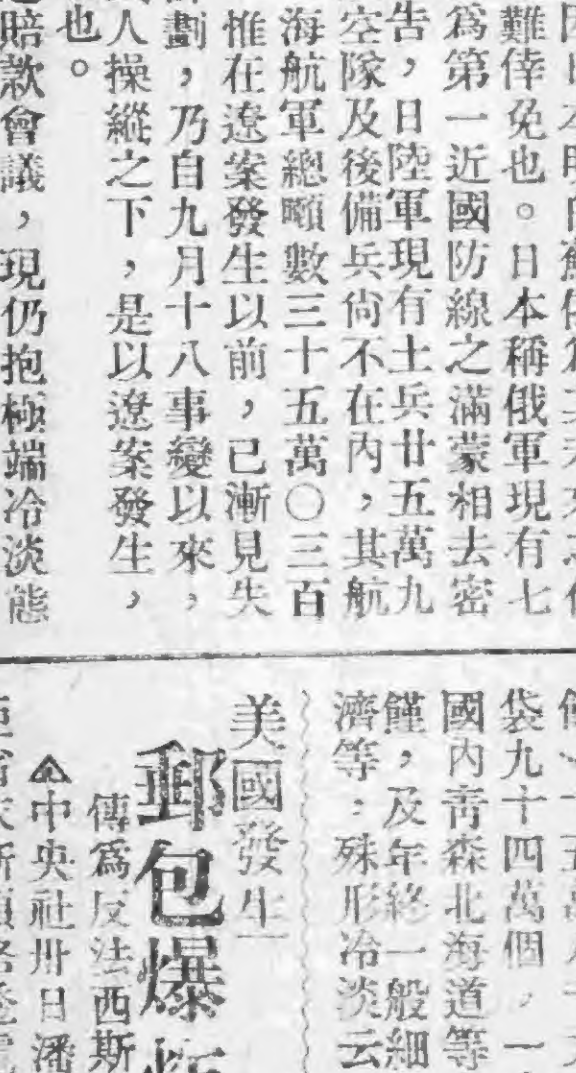 難倖免也。日本稱俄軍現有七
爲第一近國防線之滿蒙相去密
告，日陸軍現有士兵廿五萬九
空隊及後備兵尙不在內，其航
海航軍總噸數三十五萬〇三百
惟在遼案發生以前，已漸見失
劃，乃自九月十八事變以來，
人操縱之下，是以遼案發生，
也。
賠款會議，現仍抱極端冷淡態
袋九十四萬個，一
國內靑森北海道等
饉，及年終一般細
濟等：殊形冷淡云
美國發生
郵包爆
傳爲反法西斯
中央社卅日潘